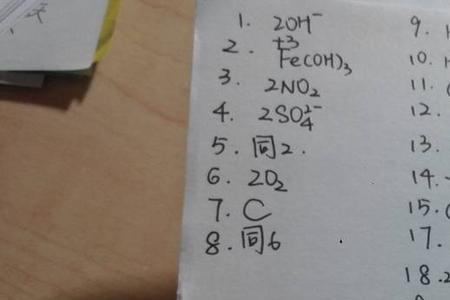 1. 2OH⁻
2. +3
Fe(OH)₃
3. 2NO₂
4. 2SO₄²⁻
5. 同2.
6. 2O₂
7. C
8. 同6
9.
10.
11.
12.
13.
14.
15.
17.
18.2